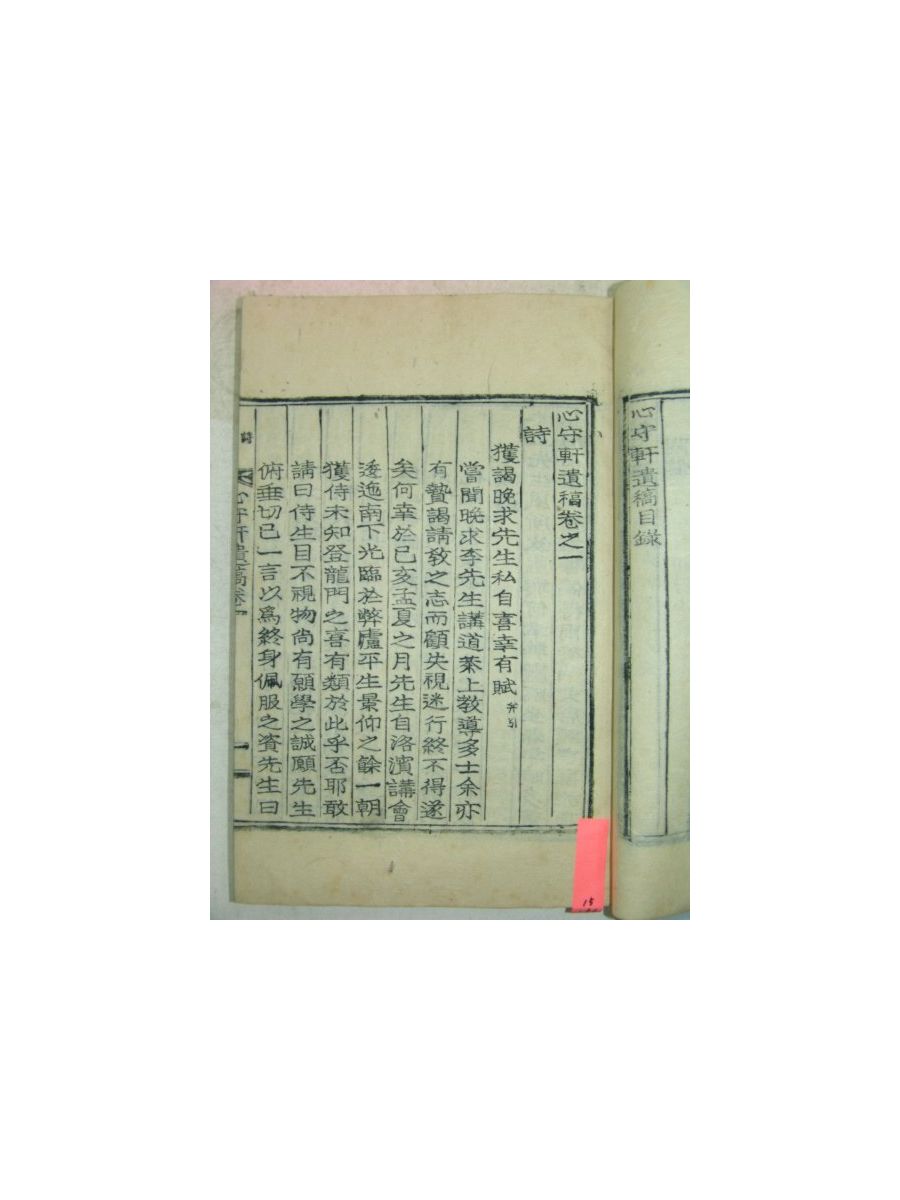 心守軒遺稿目錄
心守軒遺稿卷之一
詩
獲謁晚求先生私自喜幸有賦 幷引
嘗聞晚求李先生講道泰上教導多士余亦
有贄謁請教之志而顧失視迷行終不得遂
矣何幸於己亥孟夏之月先生自洛濱講會
逶迤南下光臨於弊廬平生景仰之餘一朝
獲侍未知登龍門之喜有類於此乎否耶敢
請曰侍生目不視物尚有願學之誠願先生
俯垂切已一言以爲終身佩服之資先生曰
詩
心守軒遺稿卷一
一
15